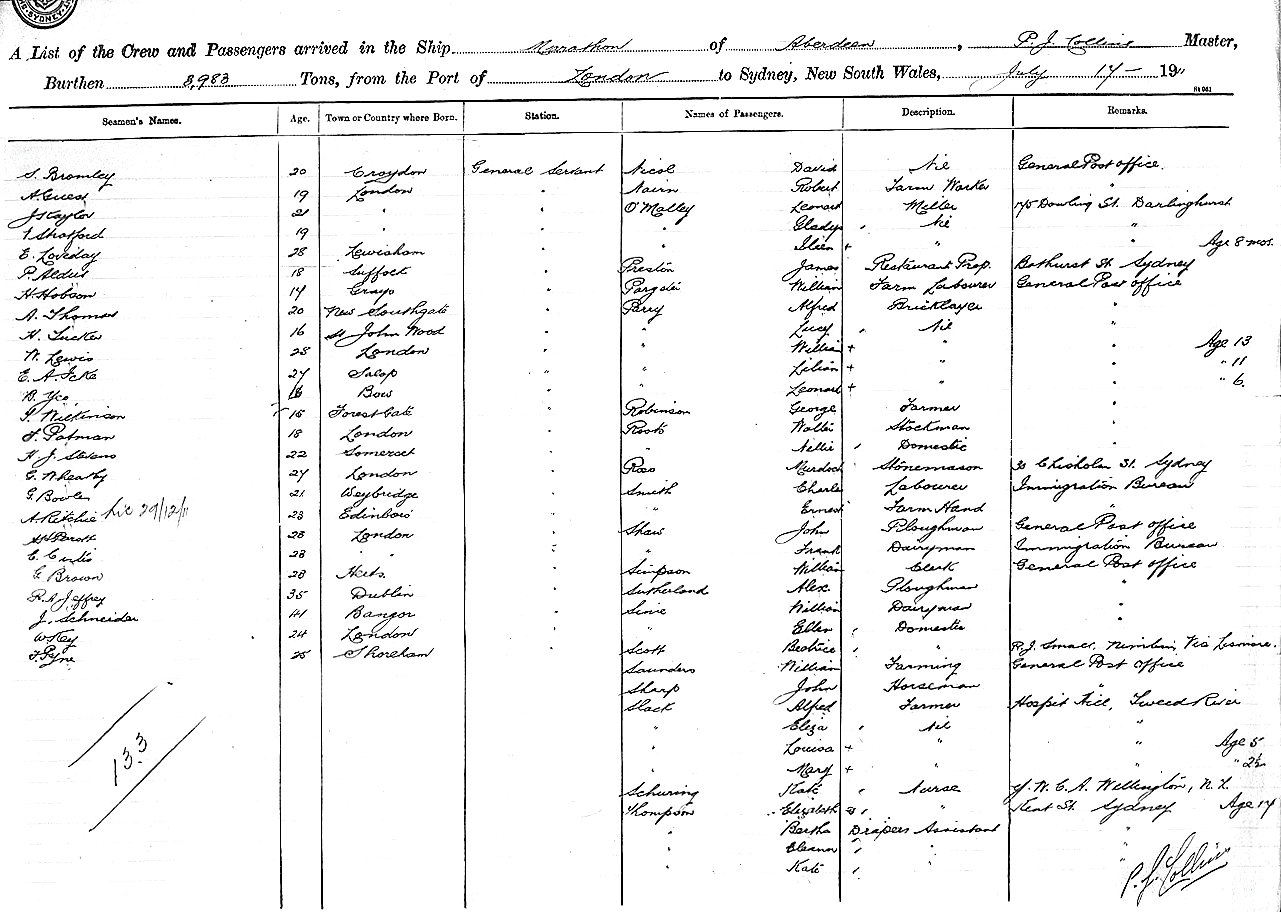 SYDNEY
A List of the Crew and Passengers arrived in the Ship Marathon of Aberdeen, P. J. Collins Master,
Burthen 8,983 Tons, from the Port of London to Sydney, New South Wales, July 14 – 19"
Seamen's Names. Age. Town or Country where Born. Station. Names of Passengers. Description. Remarks.
S. Bromley 20 Croydon General Servant Nicol David Nil General Post office.
A. Guest 19 London " Nairn Robert Farm Worker "
J Staylor 21 " " O'Malley Leonard Miller 175 Dowling St. Darlinghurst
19 " " " Gladys " Nil "
E. Loveday 28 Lewisham " " + " " Age 8 mos.
P. Aldus 18 Suffock " Preston James Restaurant Prop. Bathurst St Sydney
H. Hobson 17 Grays " William Farm Labourer General Post office
A. Thomas 20 New Southgate " Parry Alfred Bricklayer "
H. Tucker 16 St John Wood " " Lucy " Nil "
W. Lewis 28 London " " William + " " Age 13
E. A. Icke 27 Salop " " Lilian + " " " 11
18 Bow " " Leonard + " " " 6.
Wilkinson 18 Forest Gate " Robinson George Farmer "
Patman 18 London " Roots Walter Stockman "
H. J. Stevens 22 Somerset " " Nellie " Domestic "
G. Wheatly 27 London " Ross Murdoch Stonemason 30 Chisholm St. Sydney
G. Bowler 21 Weybridge " Smith Charles Labourer Immigration Bureau
A Ritchie 29/12/11 23 Edinboro " " Ernest Farm Hand "
28 London " Shaw John Ploughman General Post office
C. Curtis 28 " " " " Frank Dairyman Immigration Bureau
G. Brown 28 Herts. " Simpson William Clerk General Post office
R. A. Jeffrey 35 Dublin " Sutherland Alex. Ploughman "
J. Schneider 41 Bangor " William Dairyman "
W Key 24 London " " Ellen " Domestic "
F. Pyne 25 Shoreham " Scott Beatrice " " R. J. Small, Nimbin, Via Lismore.
Saunders William Farming General Post office
Sharp John Horseman "
Slack Alfred Farmer Hospit Hill, Tweed River
" Eliza " Nil "
" Louisa + " " Age 5
" Mary + " " " 2½
133
Schuring Kate " Nurse Y. W. C. A. Wellington, N. Z.
Thompson Elizabeth " " Kent St. Sydney Age 17
" Bertha Drapers Assistant "
" Eleanor " " "
" Kate " " "
P. J. Collins